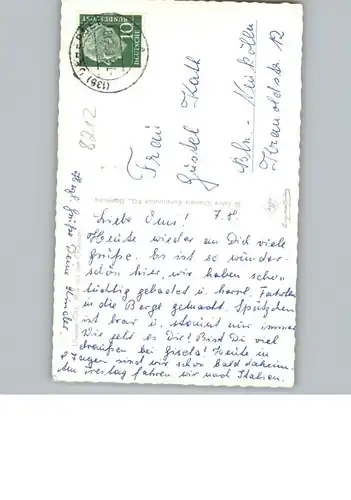 10
DEUTSCHE
BUNDESPOST
(13b)
8212
Frau
Gustel Kalk
Bln. - Neukölln
Kranoldstr. 12
Liebe Oma! 7.
Heute wieder an Dich viele
Grüße. Es ist so wunder-
schön hier, wir haben schon
tüchtig gebadet u. herrl. Fahrten
in die Berge gemacht. Spätzchen
ist brav u. staunt nur immer
Wie geht es Dir! Bist Du viel
draußen bei Gisela! Heute in
8 Tagen sind wir schon bald daheim.
Am Freitag fahren wir nach Italien.
Herzl. Grüße Deine Kinder